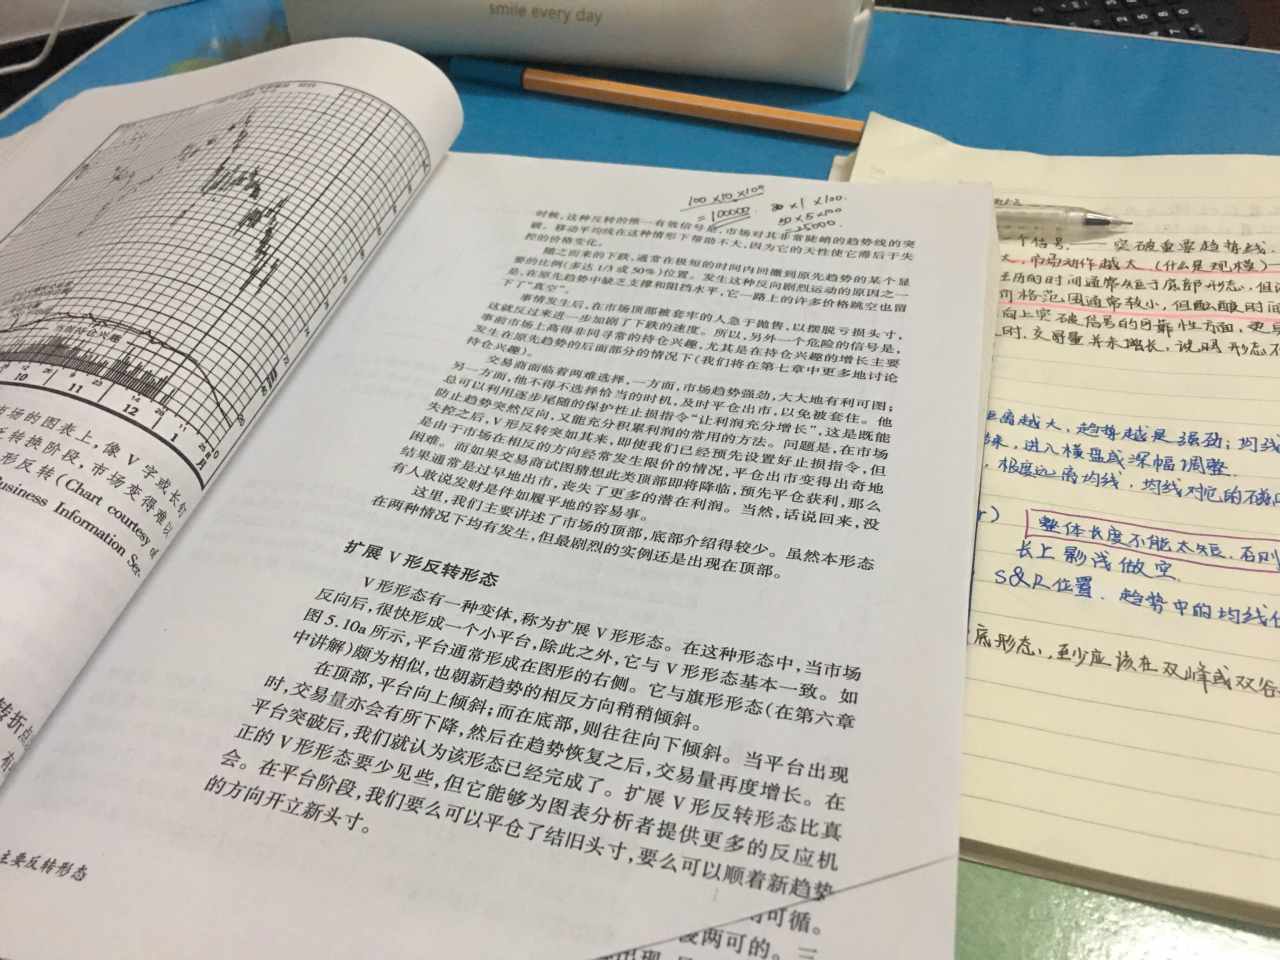 smile every day
当前持仓兴趣
10
11
12
1
市场的图表上，像 V 字或长钉
转换阶段，市场变得难以
形反转 (Chart courtesy of
Business Information Ser-
转折点
主要反转形态
100×10×100
=100000
×1×100
50×5×100
=25000
时候，这种反转的唯一有效信号是，市场对其非常陡峭的趋势线的突
破。移动平均线在这种情形下帮助不大，因为它的天性使它滞后于失
控的价格变化。
随之而来的下跌，通常在极短的时间内回撤到原先趋势的某个显
要的比例(多达 1/3 或 50%)位置。发生这种反向剧烈运动的原因之一
是，在原先趋势中缺乏支撑和阻挡水平，它一路上的许多价格跳空也留
下了"真空"。
事情发生后，在市场顶部被套牢的人急于抛售，以摆脱亏损头寸，
这就反过来进一步加剧了下跌的速度。所以，另外一个危险的信号是，
事前市场上高得非同寻常的持仓兴趣，尤其是在持仓兴趣的增长主要
发生在原先趋势的后面部分的情况下(我们将在第七章中更多地讨论
持仓兴趣)。
交易商面临着两难选择，一方面，市场趋势强劲，大大地有利可图；
另一方面，他不得不选择恰当的时机，及时平仓出市，以免被套住。他
总可以利用逐步尾随的保护性止损指令"让利润充分增长"，这是既能
防止趋势突然反向，又能充分积累利润的常用的方法。问题是，在市场
失控之后，V 形反转突如其来，即使我们已经预先设置好止损指令，但
是由于市场在相反的方向经常发生限价的情况，平仓出市变得出奇地
困难。而如果交易商试图猜想此类顶部即将降临，预先平仓获利，那么
结果通常是过早地出市，丧失了更多的潜在利润。当然，话说回来，没
有人敢说发财是件如履平地的容易事。
这里，我们主要讲述了市场的顶部，底部介绍得较少。虽然本形态
在两种情况下均有发生，但最剧烈的实例还是出现在顶部。
扩展 V 形反转形态
V 形形态有一种变体，称为扩展 V 形形态。在这种形态中，当市场
反向后，很快形成一个小平台，除此之外，它与 V 形形态基本一致。如
图 5.10a 所示，平台通常形成在图形的右侧。它与旗形形态(在第六章
中讲解)颇为相似，也朝新趋势的相反方向稍稍倾斜。
在顶部，平台向上倾斜；而在底部，则往往向下倾斜。当平台出现
时，交易量亦会有所下降，然后在趋势恢复之后，交易量再度增长。在
平台突破后，我们就认为该形态已经完成了。扩展 V 形反转形态比真
正的 V 形形态要少见些，但它能够为图表分析者提供更多的反应机
会。在平台阶段，我们要么可以平仓了结旧头寸，要么可以顺着新趋势
的方向开立新头寸。
可循。
两可的。三
个信号，——突破重要趋势线.
大，市场动作越大 (什么是规模)
经历的时间通常短于底部形态，但
价格范围通常较小，但酝酿时间
向上突破信号的可靠性方面，更
时，交易量并未增长，说明形态不
距离越大，趋势越是强劲；均线
来，进入横盘或深幅调整.
，极度远离均线，均线对它的
整体长度不能太短，否则
长上影线做空.
S&R位置. 趋势中的均线
底形态，至少应该在双峰或双谷